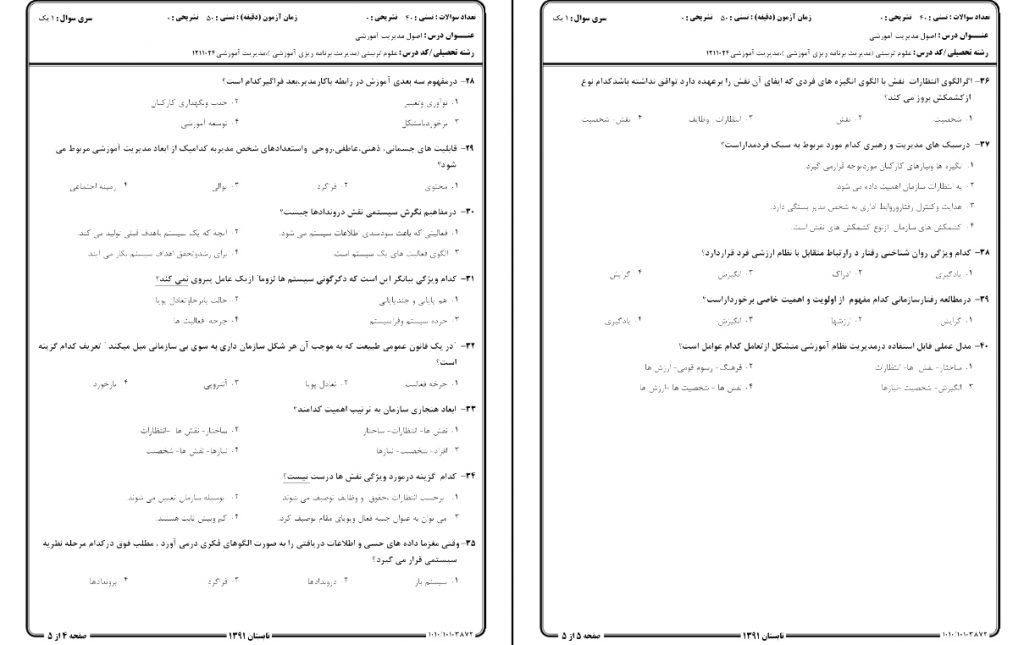 تعداد سوالات : تستی : ۴۰ تشریحی : ۰
زمان آزمون (دقیقه) : تستی : ۵۰ تشریحی : ۰
سری سوال : ۱ یک
عنـــوان درس : اصول مدیریت آموزشی
رشته تحصیلی/کد درس : علوم تربیتی (مدیریت برنامه ریزی آموزشی )،مدیریت آموزشی ۱۲۱۱۰۲۴
۲۸- درمفهوم سه بعدی آموزش در رابطه باکارمدیر،بعد فراگیرکدام است؟
۱. نوآوری وتغییر
۲. جذب ونگهداری کارکنان
۳. برخوردبامشکل
۴. توسعه آموزشی
۲۹- قابلیت های جسمانی، ذهنی،عاطفی،روحی واستعدادهای شخص مدیربه کدامیک از ابعاد مدیریت آموزشی مربوط می
شود؟
۱. محتوی
۲. فراگرد
۳. توالی
۴. زمینه اجتماعی
۳۰- درمفاهیم نگرش سیستمی نقش دروندادها چیست؟
۱. فعالیتی که باعث سودمندی اطلاعات سیستم می شود.
۲. آنچه که یک سیستم باهدف قبلی تولید می کند.
۳. الگوی فعالیت های یک سیستم است.
۴. برای رشدوتحقق اهداف سیستم بکار می آیند
۳۱- کدام ویژگی بیانگر این است که دگرگونی سیستم ها لزوما ازیک عامل پیروی نمی کند؟
۱. هم پایانی و چندپایانی
۲. حالت پابرجاوتعادل پویا
۳. خرده سیستم وفراسیستم
۴. چرخه فعالیت ها
۳۲- "در یک قانون عمومی طبیعت که به موجب آن هر شکل سازمان داری به سوی بی سازمانی میل میکند " تعریف کدام گزینه
است؟
۱. چرخه فعالیت
۲. تعادل پویا
۳. آنتروپی
۴. بازخورد
۳۳- ابعاد هنجاری سازمان به ترتیب اهمیت کدامند؟
۱. نقش ها- انتظارات- ساختار
۲. ساختار- نقش ها -انتظارات
۳. افراد- شخصیت- نیازها
۴. نیازها- نقش ها- شخصیت
۳۴- کدام گزینه درمورد ویژگی نقش ها درست نیست؟
۱. برحسب انتظارات ،حقوق و وظایف توصیف می شوند
۲. بوسیله سازمان تعیین می شوند
۳. می توان به عنوان جنبه فعال وپویای مقام توصیف کرد.
۴. کم وبیش ثابت هستند.
۳۵- وقتی مغزما داده های حسی و اطلاعات دریافتی را به صورت الگوهای فکری درمی آورد ، مطلب فوق درکدام مرحله نظریه
سیستمی قرار می گیرد؟
۱. سیستم باز
۲. دروندادها
۳. فراگرد
۴. بروندادها
صفحه ۴ از ۵
تابستان ۱۳۹۱
۱۰۱۰/۱۰۱۰۳۸۷۲
تعداد سوالات : تستی : ۴۰ تشریحی : ۰
زمان آزمون (دقیقه) : تستی : ۵۰ تشریحی : ۰
سری سوال : ۱ یک
عنـــوان درس : اصول مدیریت آموزشی
رشته تحصیلی/کد درس : علوم تربیتی (مدیریت برنامه ریزی آموزشی )،مدیریت آموزشی ۱۲۱۱۰۲۴
۳۶- اگرالگوی انتظارات نقش با الگوی انگیزه های فردی که ایفای آن نقش را برعهده دارد توافق نداشته باشدکدام نوع
ازکشمکش بروز می کند؟
۱. شخصیت
۲. نقش
۳. انتظارات- وظایف
۴. نقش- شخصیت
۳۷- درسبک های مدیریت و رهبری کدام مورد مربوط به سبک فردمداراست؟
۱. انگیزه ها ونیازهای کارکنان موردتوجه قرارمی گیرد.
۲. به انتظارات سازمان اهمیت داده می شود.
۳. هدایت وکنترل رفتاروروابط اداری به شخص مدیر بستگی دارد.
۴. کشمکش های سازمان ازنوع کشمکش های نقش است.
۳۸- کدام ویژگی روان شناختی رفتار د رارتباط متقابل با نظام ارزشی فرد قراردارد؟
۱. یادگیری
۲. ادراک
۳. انگیزش
۴. گرایش
۳۹- درمطالعه رفتارسازمانی کدام مفهوم از اولویت و اهمیت خاصی برخورداراست؟
۱. گرایش
۲. ارزشها
۳. انگیزش
۴. یادگیری
۴۰- مدل عملی قابل استفاده درمدیریت نظام آموزشی متشکل ازتعامل کدام عوامل است؟
۱. ساختار- نقش ها- انتظارات
۲. فرهنگ- رسوم قومی- ارزش ها
۳. انگیزش- شخصیت -نیازها
۴. نقش ها - شخصیت ها -ارزش ها
صفحه ۵ از ۵
تابستان ۱۳۹۱
۱۰۱۰/۱۰۱۰۳۸۷۲